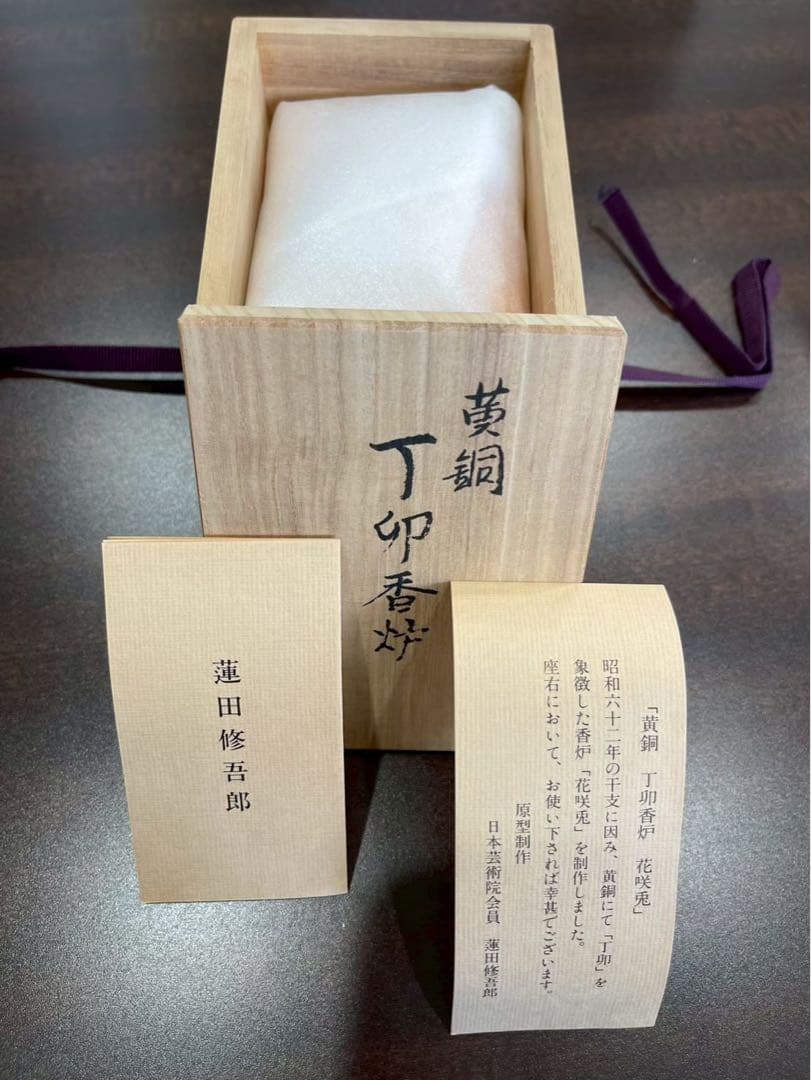 黄銅
丁卯香炉
蓮田修吾郎
「黄銅　丁卯香炉　花咲兎」
昭和六十二年の干支に因み、黄銅にて「丁卯」を
象徴した香炉「花咲兎」を制作しました。
座右において、お使い下されば幸甚でございます。
原型制作
日本芸術院会員　蓮田修吾郎